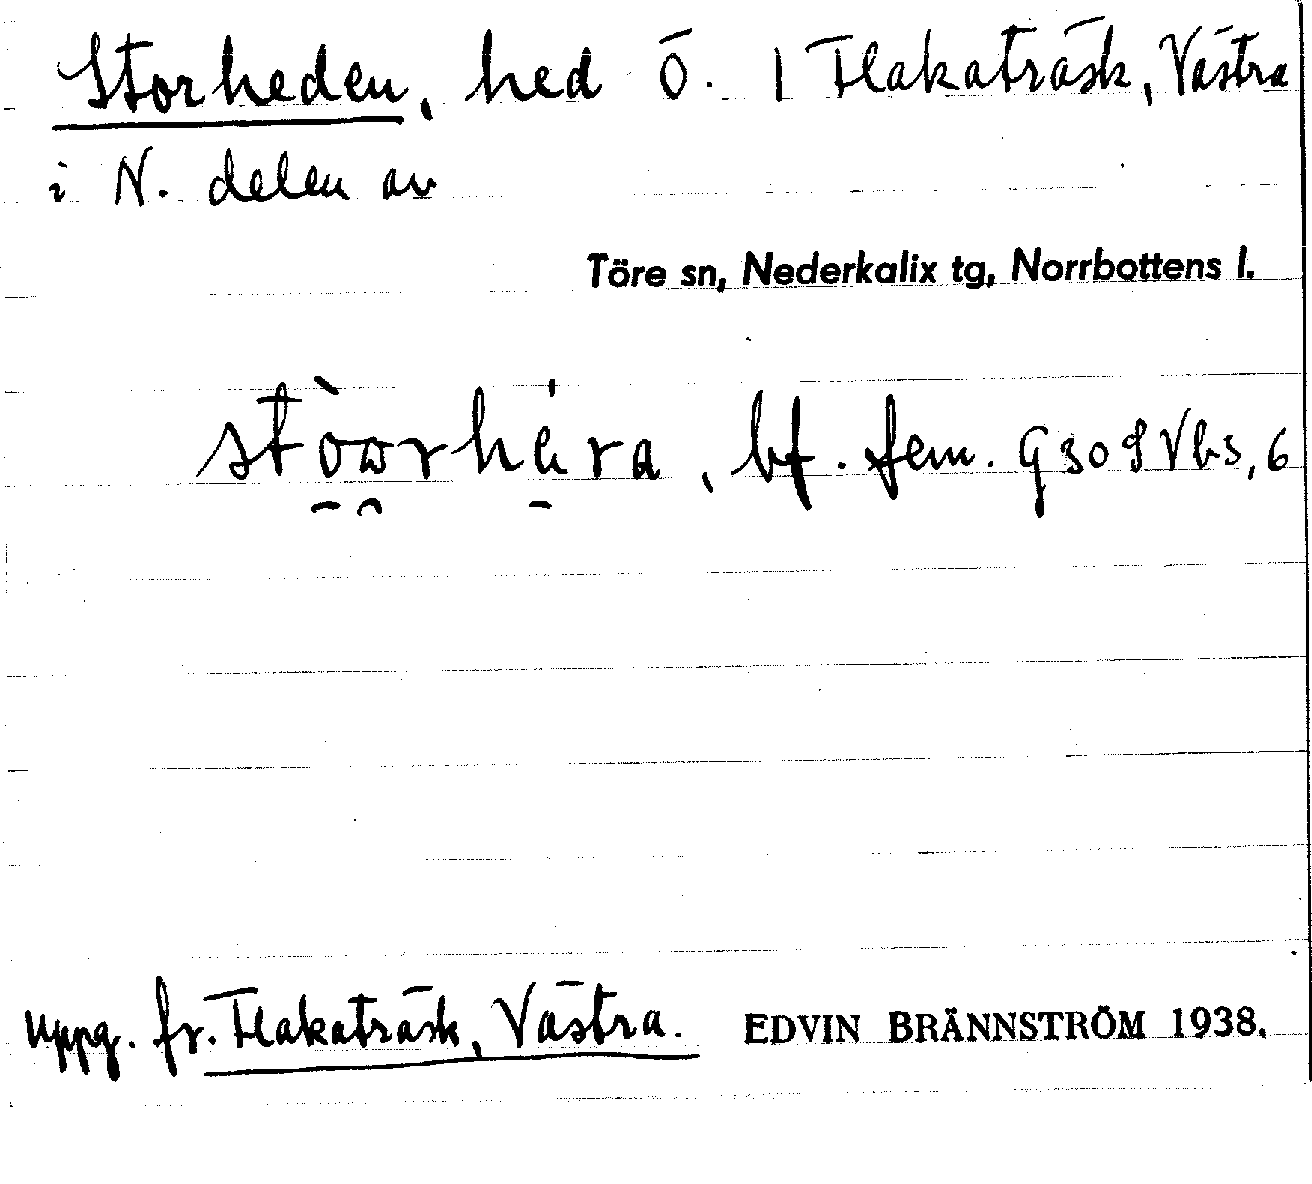 Storheden, hed Ö. I Flakaträsk, Västra
i N. delen av
Töre sn, Nederkalix tg, Norrbottens l.
bf. fem.
uppg. fr. Flakaträsk, Västra.
EDVIN BRÄNNSTRÖM 1938.